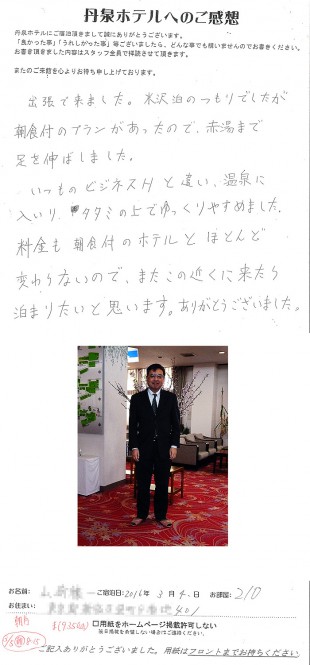 丹泉ホテルへのご感想
丹泉ホテルにご宿泊頂きまして誠にありがとうございます。
「良かった事」「うれしかった事」等ございましたら、どんな事でも構いませんのでお書きください。
お書き頂きました内容はスタッフ全員で拝読させて頂きます。
またのご来館を心よりお待ち申し上げております。
出張で来ました。米沢泊のつもりでしたが
朝食付のプランがあったので、赤湯まで
足を伸ばしました。
いつものビジネスHと違い、温泉に
入いり、タタミの上でゆっくりやすめました。
料金も朝食付のホテルとほとんど
変わらないので、またこの近くに来たら
泊まりたいと思います。ありがとうございました。
お名前: 様 ご宿泊日:2016年 3月 4.日 お部屋: 210
お住まい: 401
□用紙をホームページ掲載許可しない
ご記入ありがとうございました。用紙はフロントまでお持ちください。